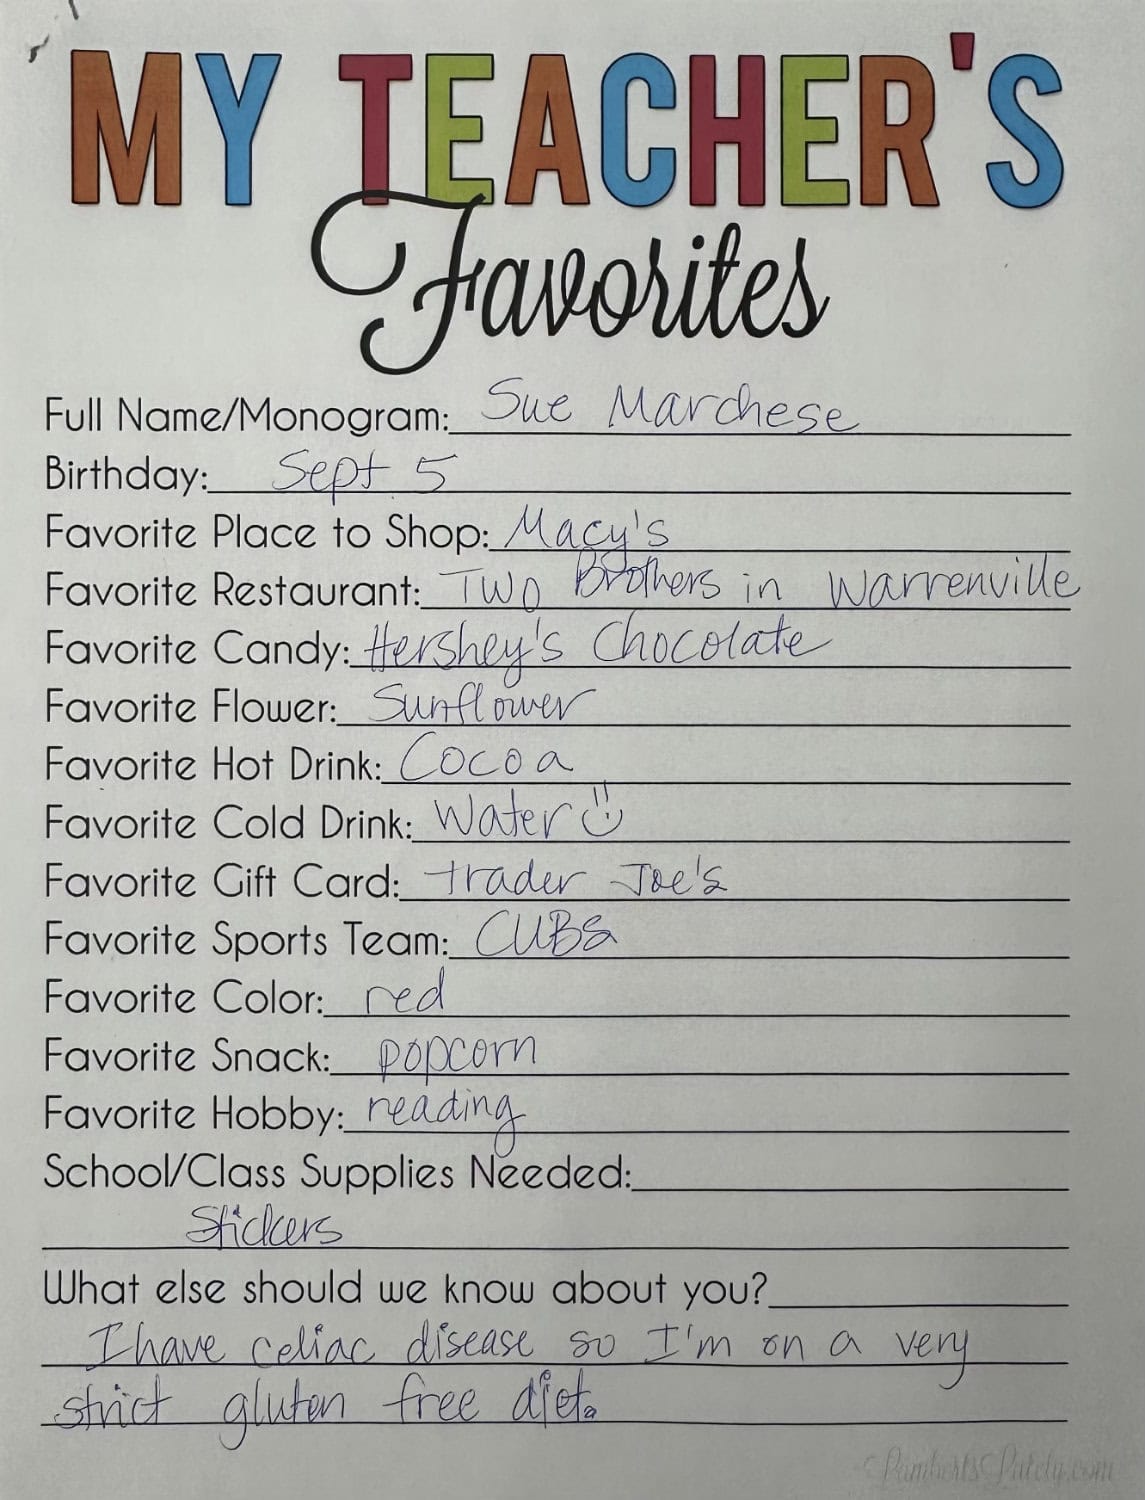 MY TEACHER'S
Favorites
Full Name/Monogram: Sue Marchese
Birthday: Sept 5
Favorite Place to Shop: Macy's
Favorite Restaurant: Two Brothers in Warrenville
Favorite Candy: Hershey's Chocolate
Favorite Flower: Sunflower
Favorite Hot Drink: Cocoa
Favorite Cold Drink: Water
Favorite Gift Card: trader Joe's
Favorite Sports Team: CUBS
Favorite Color: red
Favorite Snack: popcorn
Favorite Hobby: reading
School/Class Supplies Needed:
Stickers
What else should we know about you?
I have celiac disease so I'm on a very
strict gluten free diet.
LambertsLately.com